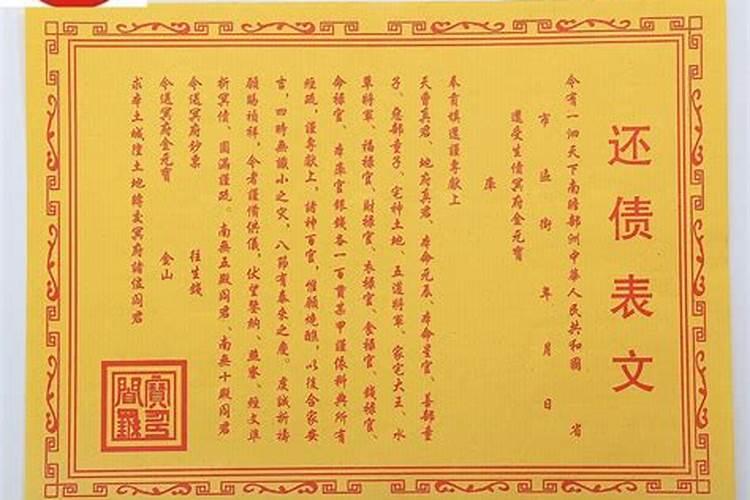 还债表文
今有一泗天下南瞻部洲中華人民共和國 省
市 區 街 年 月 日
還受生債冥府金元寶
庫
奉育填還謹專獻上
天曹真君、地府真君、本命元辰、本命星官、善部童
子、惡部童子、宅神土地、五道將軍、家宅大王、水
草將軍、福禄官、財禄官、衣禄官、食禄官、錢禄官、
命禄官、本庫官銀錢各一百貫某甲謹依科典所有
經疏，謹專獻上，諸神百官，惟願燒醮，以後合家安
吉，四時無讖小之灾，八節有泰來之慶。虔誠祈禱
願賜禎祥，令者謹備供儀，伏望鑒納、慈 經文準
折冥債、圓滿謹疏。南無五殿阎君、南無十殿阎君
今送冥府鈔票 往生錢
今送冥府金元寶 金山
求本土城隍土地轉交冥府諸位阎君